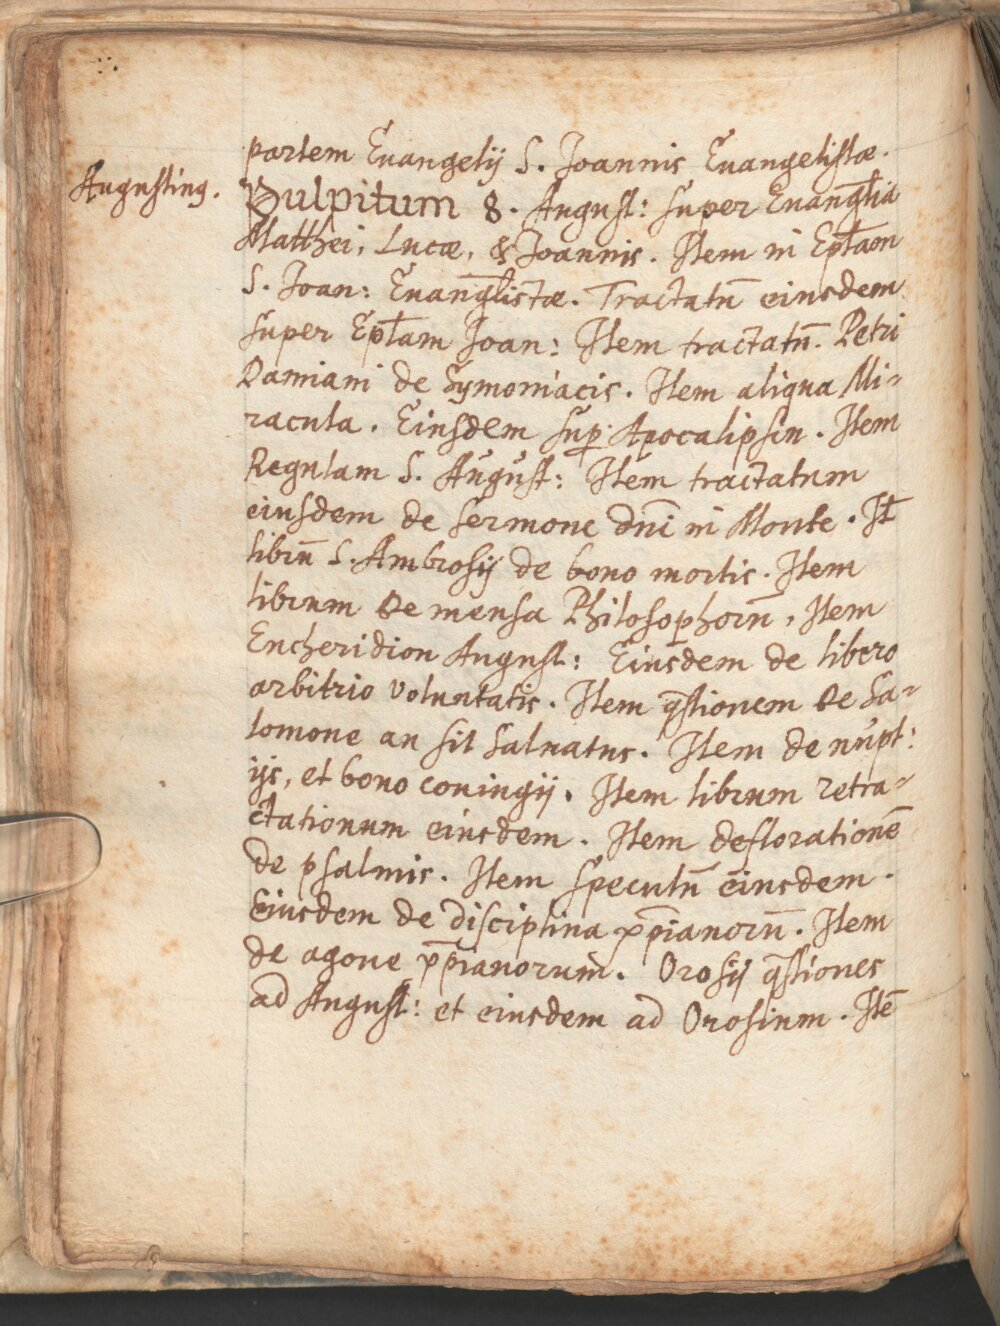 partem Euangelij S. Joannis Euangelistæ.
Augustinꝯ.
Pulpitum 8. August: super Euangl̄ia
Matthei, Lucæ, & Joannis. Item in Epl̄aon
S. Joan: Euangl̄istæ. Tractatū eiusdem
super Epl̄am Joan: Item tractatū. Petri
Damiani de Symoniacis. Item aliqua Mi-
racula. Eiusdem sup̱. Apocalipsin. Item
Regulam S. August: Item tractatum
eiusdem de sermone dn̄i in Monte. It̄
librū S. Ambrosij de bono mortis. Item
librum de mensa Philosophorū, Item
Encheridion August: Eiusdem de libero
arbitrio voluntatis. Item q̄stionem de Sa-
lomone an sit saluatus. Item de nupt:
ijs, et bono coniugij. Item librum retra-
ctationum eiusdem. Item deflorationē
de psalmis. Item speculū eiusdem.
Eiusdem de disciplina xp̄ianorū. Item
de agone xp̄ianorum. Orosij q̄stiones
ad August: et eiusdem ad Orosium. Itē